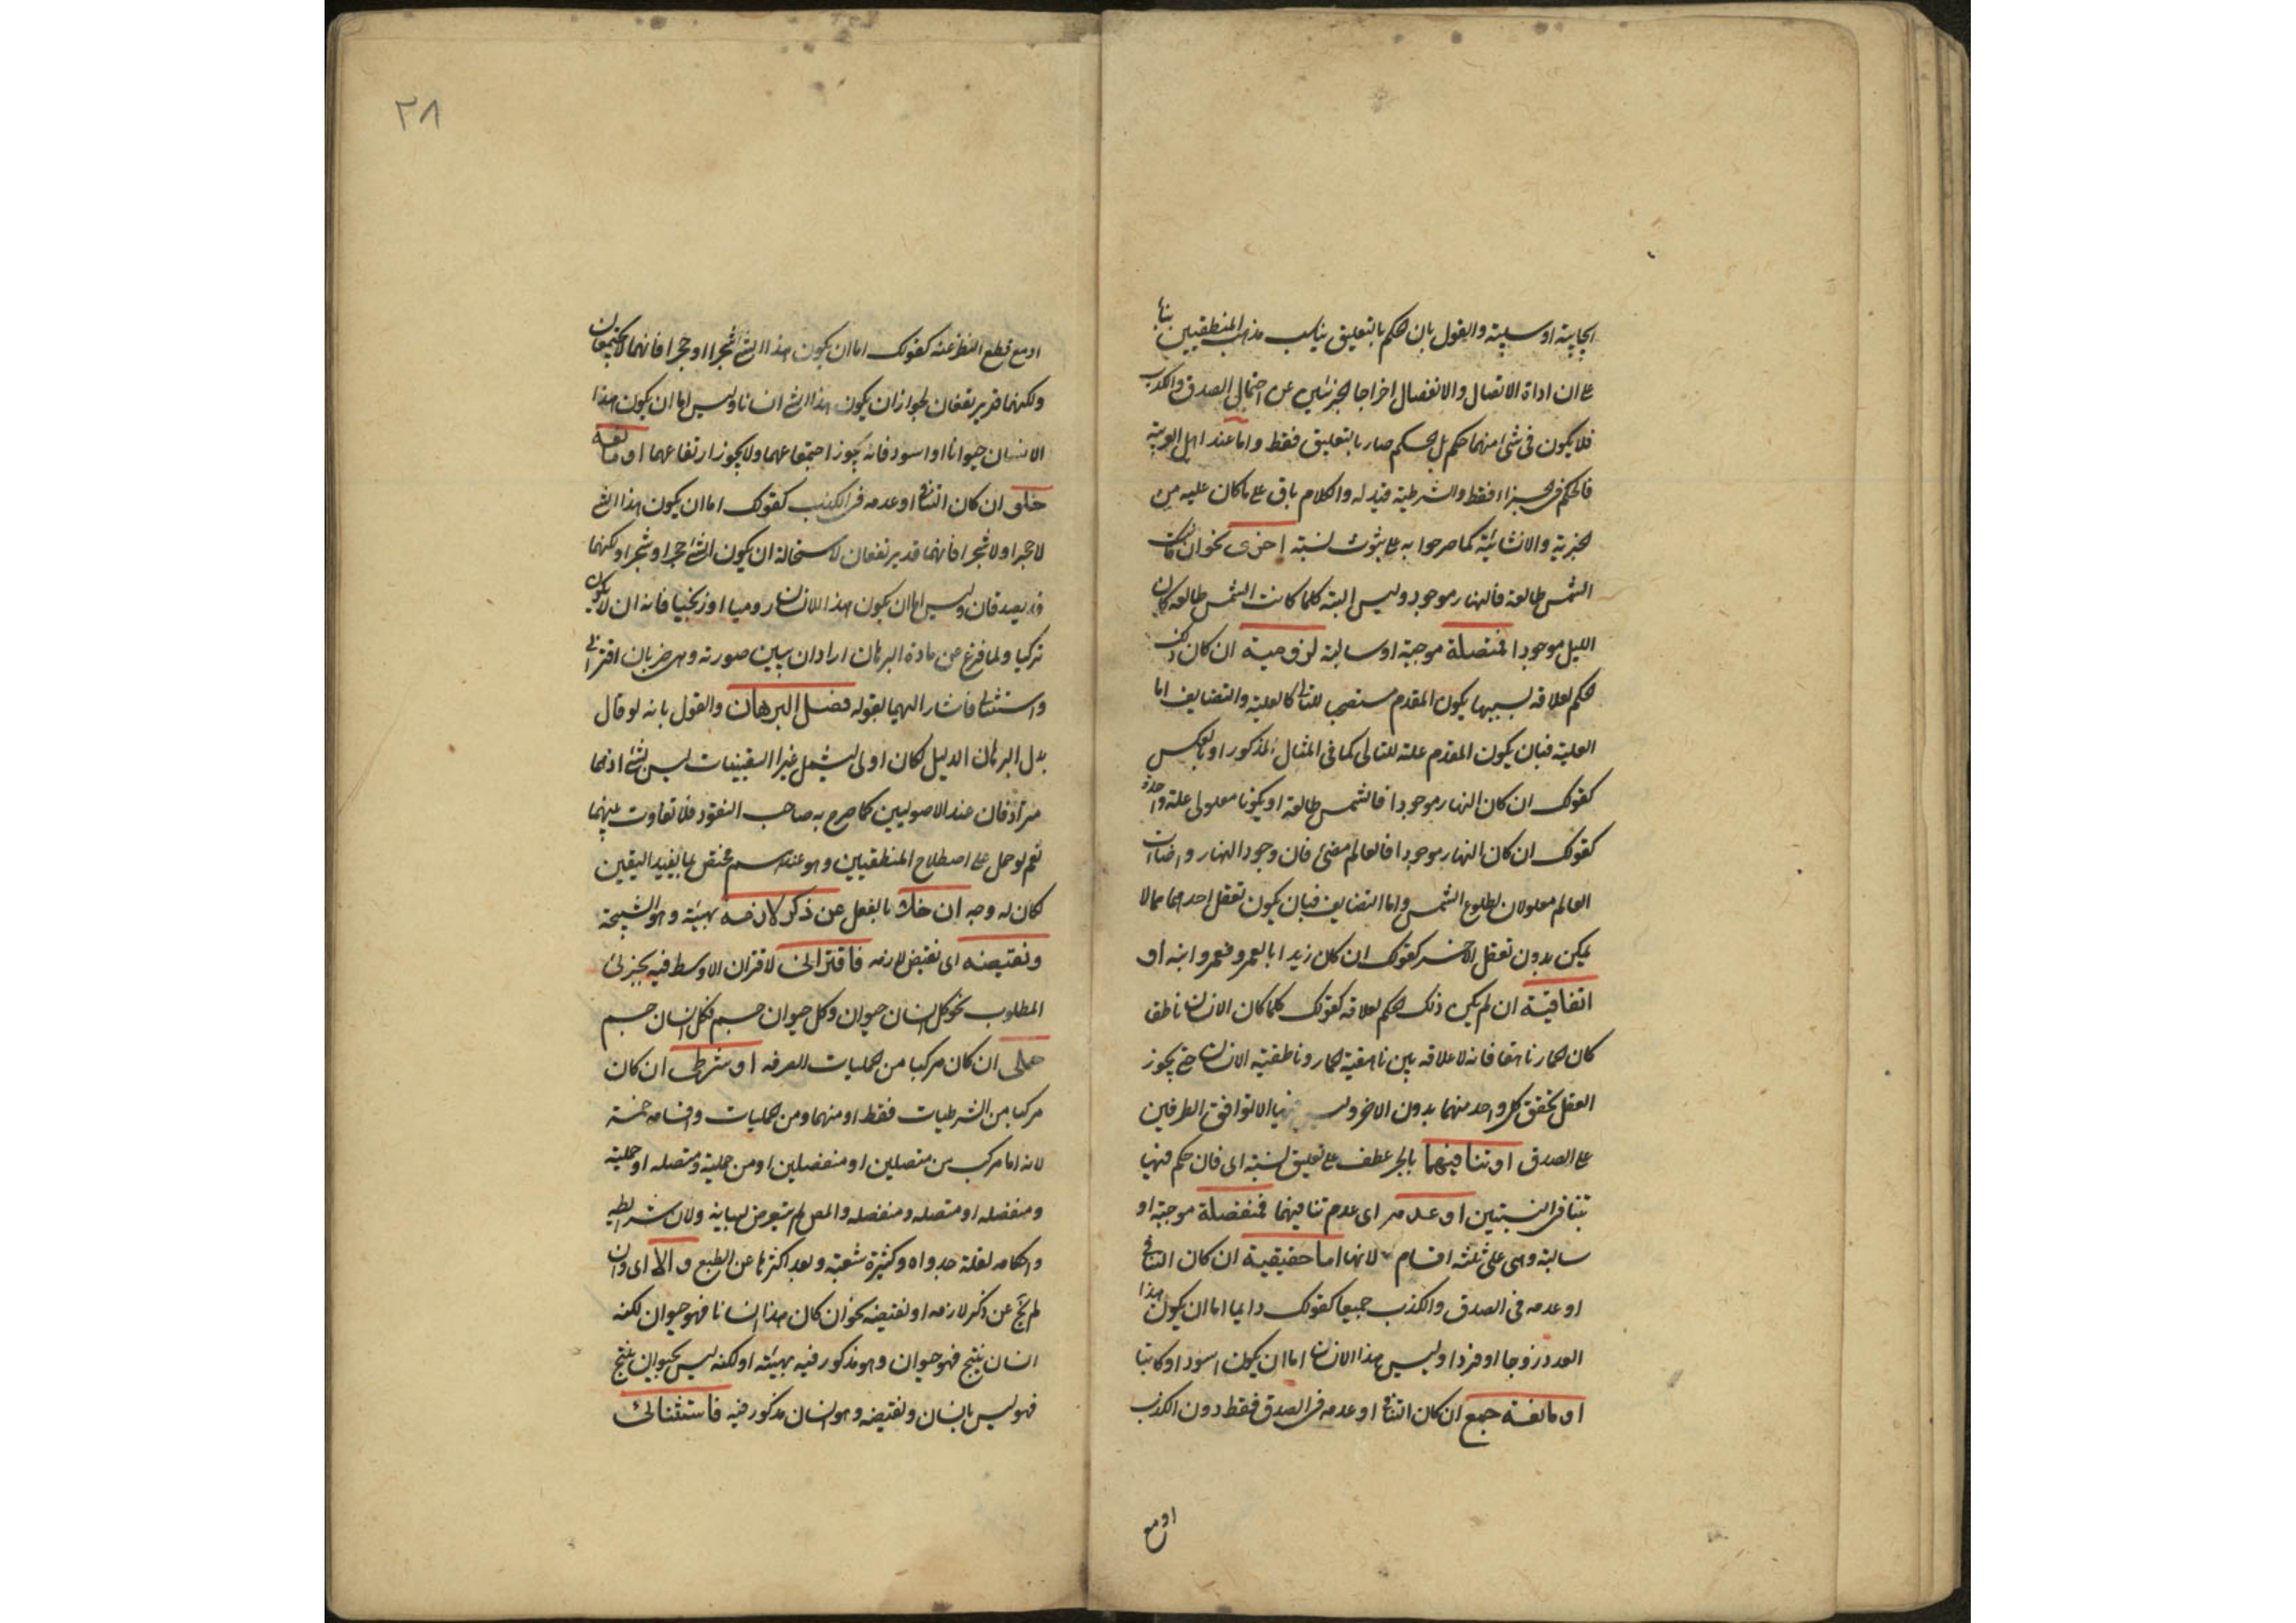 ايجابية او سلبية والقول بان الحكم بالتعليق يناسب مذهب المنطقيين بناء
على ان اداة الاتصال والانفصال اخراجا لجزئين عن احتمال الصدق والكذب
فلا يكون فى شئ منهما حكم بل الحكم صار بالتعليق فقط واما عند اهل العربية
فالحكم فى الجزاء فقط والشرطية قيد له والكلام باق على ما كان عليه من
الخبرية والانشائية كما صرحوا به على ثبوت نسبة اخرى نحو ان كانت
الشمس طالعة فالنهار موجود وليس البتة كلما كانت الشمس طالعة كان
الليل موجودا فمتصلة موجبة او سالبة لزومية ان كان ذلك
الحكم لعلاقة بسببها يكون المقدم مستصحب للتالى كالعلية والتضايف اما
العلية فبان يكون المقدم علة للتالى كما فى المثال المذكور او بالعكس
كقولك ان كان النهار موجودا فالشمس طالعة او يكونا معلولى علة واحدة
كقولك ان كان النهار موجودا فالعالم مضئ فان وجود النهار واضاءت
العالم معلولان لطلوع الشمس واما التضايف فبان يكون تعقل احدهما مما لا
يمكن بدون تعقل الاخر كقولك ان كان زيد ابا لعمرو فعمرو ابنه او
اتفاقية ان لم يكن ذلك الحكم لعلاقة كقولك كلما كان الانسان ناطقا
كان الحمار ناهقا فانه لا علاقة بين ناهقية الحمار وناطقية الانسان حتى يجوز
العقل تحقق كل واحد منهما بدون الاخر وليس فيها الا توافق الطرفين
على الصدق او تنافيهما بالجر عطف على تعليق نسبة اى فان حكم فيها
بتنافى النسبتين او عدمه اى عدم تنافيهما فمنفصلة موجبة او
سالبة وهى على ثلثة اقسام لانها اما حقيقية ان كان التنافى
او عدمه فى الصدق والكذب جميعا كقولك دايما اما ان يكون هذا
العدد زوجا او فردا وليس هذا الانسان اما ان يكون اسود او كاتبا
او مانعة جمع ان كان التنافى او عدمه فى الصدق فقط دون الكذب
او مع
٢٨
او مع قطع النظر عنه كقولك اما ان يكون هذا الشئ شجرا او حجرا فانهما لا يجتمعان
ولكنهما قد يرتفعان لجواز ان يكون هذا الشئ انسانا وليس اما ان يكون هذا
الانسان حيوانا او اسود فانه يجوز اجتماعهما ولا يجوز ارتفاعهما او مانعة
خلو ان كان التنافى او عدمه فى الكذب كقولك اما ان يكون هذا الشئ
لا حجرا ولا شجرا فانهما قد يرتفعان لاستحالة ان يكون الشئ حجرا وشجرا ولكنهما
قد يصدقان وليس اما ان يكون هذا الانسان روميا او زنجيا فانه ان لا يكون
تركيا ولما فرغ من مادة البرهان اراد ان يبين صورته وهى ضربان اقترانى
واستثنائى فاشار اليهما بقوله فصل البرهان والقول بانه لو قال
بدل البرهان الدليل لكان اولى ليشمل غير اليقينيات ليس بشئ اذ هما
مترادفان عند الاصوليين كما صرح به صاحب النقود فلا تفاوت بينهما
نعم لو حمل على اصطلاح المنطقيين وهو عندهم مختص بما يفيد اليقين
لكان له وجه ان خلا بالفعل عن ذكر لازمه بهيئته وهو النتيجة
ونقيضه اى نقيض لازمه فاقترانى لاقتران الاوسط فيه بجزئى
المطلوب نحو كل انسان حيوان وكل حيوان جسم فكل انسان جسم
حملى ان كان مركبا من الحمليات الصرفه او شرطى ان كان
مركبا من الشرطيات فقط او منهما ومن الحمليات واقسامه خمسة
لانه اما مركب من متصلين او منفصلين او من حملية ومتصله او حملية
ومنفصله او متصله ومنفصله والمص لم يتعرض لبيانه ولان شرائطه
واحكامه لقلة جدواه وكثيرة شعبة وبعد اكثرها عن الطبع والا اى وان
لم يخ عن ذكر لازمه او نقيضه نحو ان كان هذا انسانا فهو حيوان لكنه
انسان ينتج فهو حيوان وهو مذكور فيه بهيئته او لكنه ليس بحيوان ينتج
فهو ليس بانسان ونقيضه وهو انسان مذكور فيه فاستثنائى